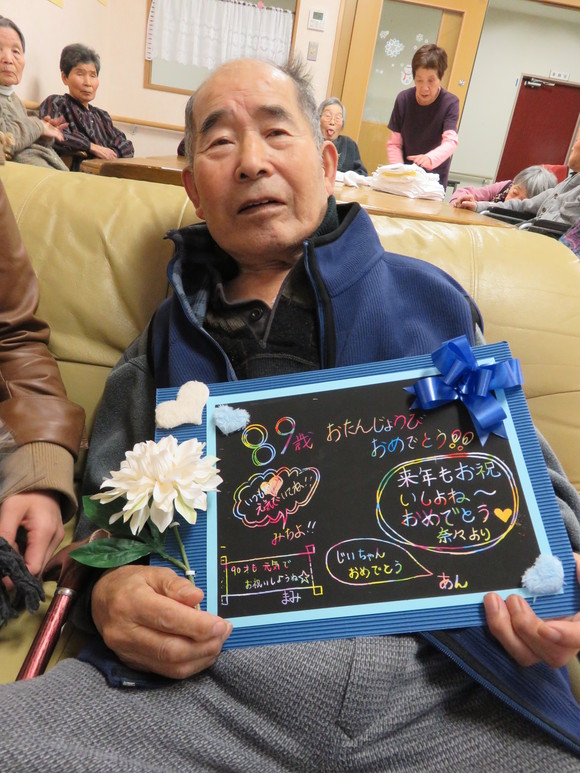 89歳 おたんじょうび
おめでとう!!
いつも
元気でいてね!!
みちよ!!
来年もお祝
いしよね〜
おめでとう
奈々より
90才も元気で
お祝いしようね☆
まみ
じいちゃん
おめでとう
あん